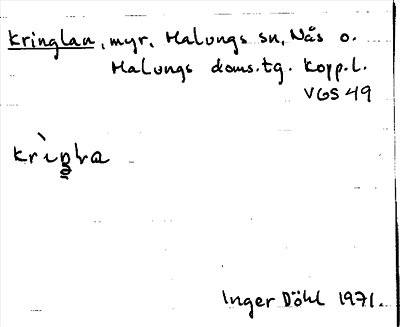 Kringlan, myr. Malungs sn, Nås o.
Malungs doms.tg. Kopp.l.
VGS 49
Inger Döhl 1971.